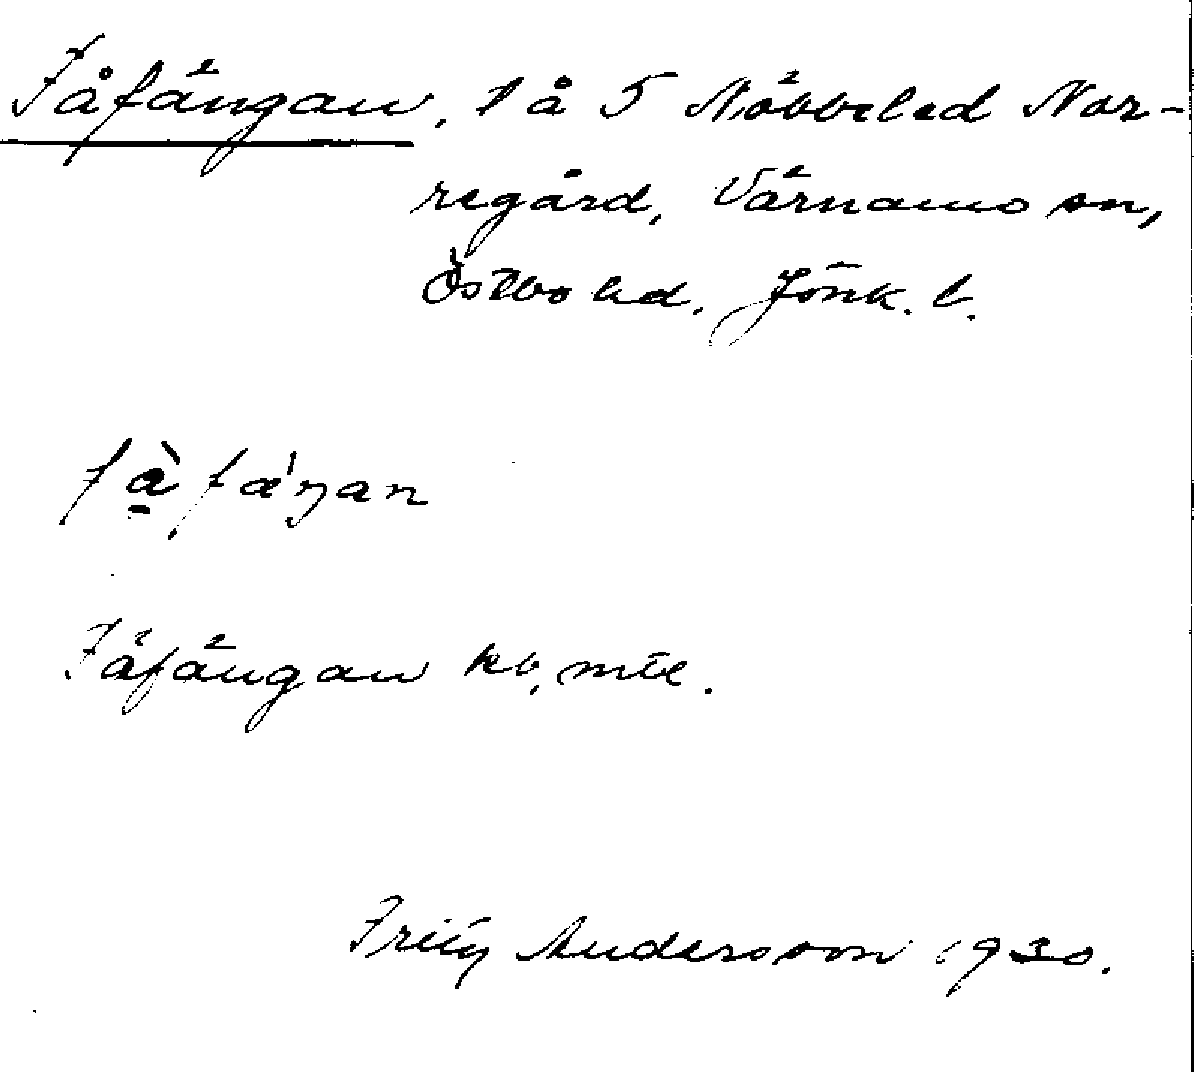 Fåfängan, 1 å 5 Nöbbeled Nor-
regård, Värnamo sn,
Östbo hd. Jönk. l.
fà̱fáŋan
Fåfängan kb, mtl.
Fritz Andersson 1930.